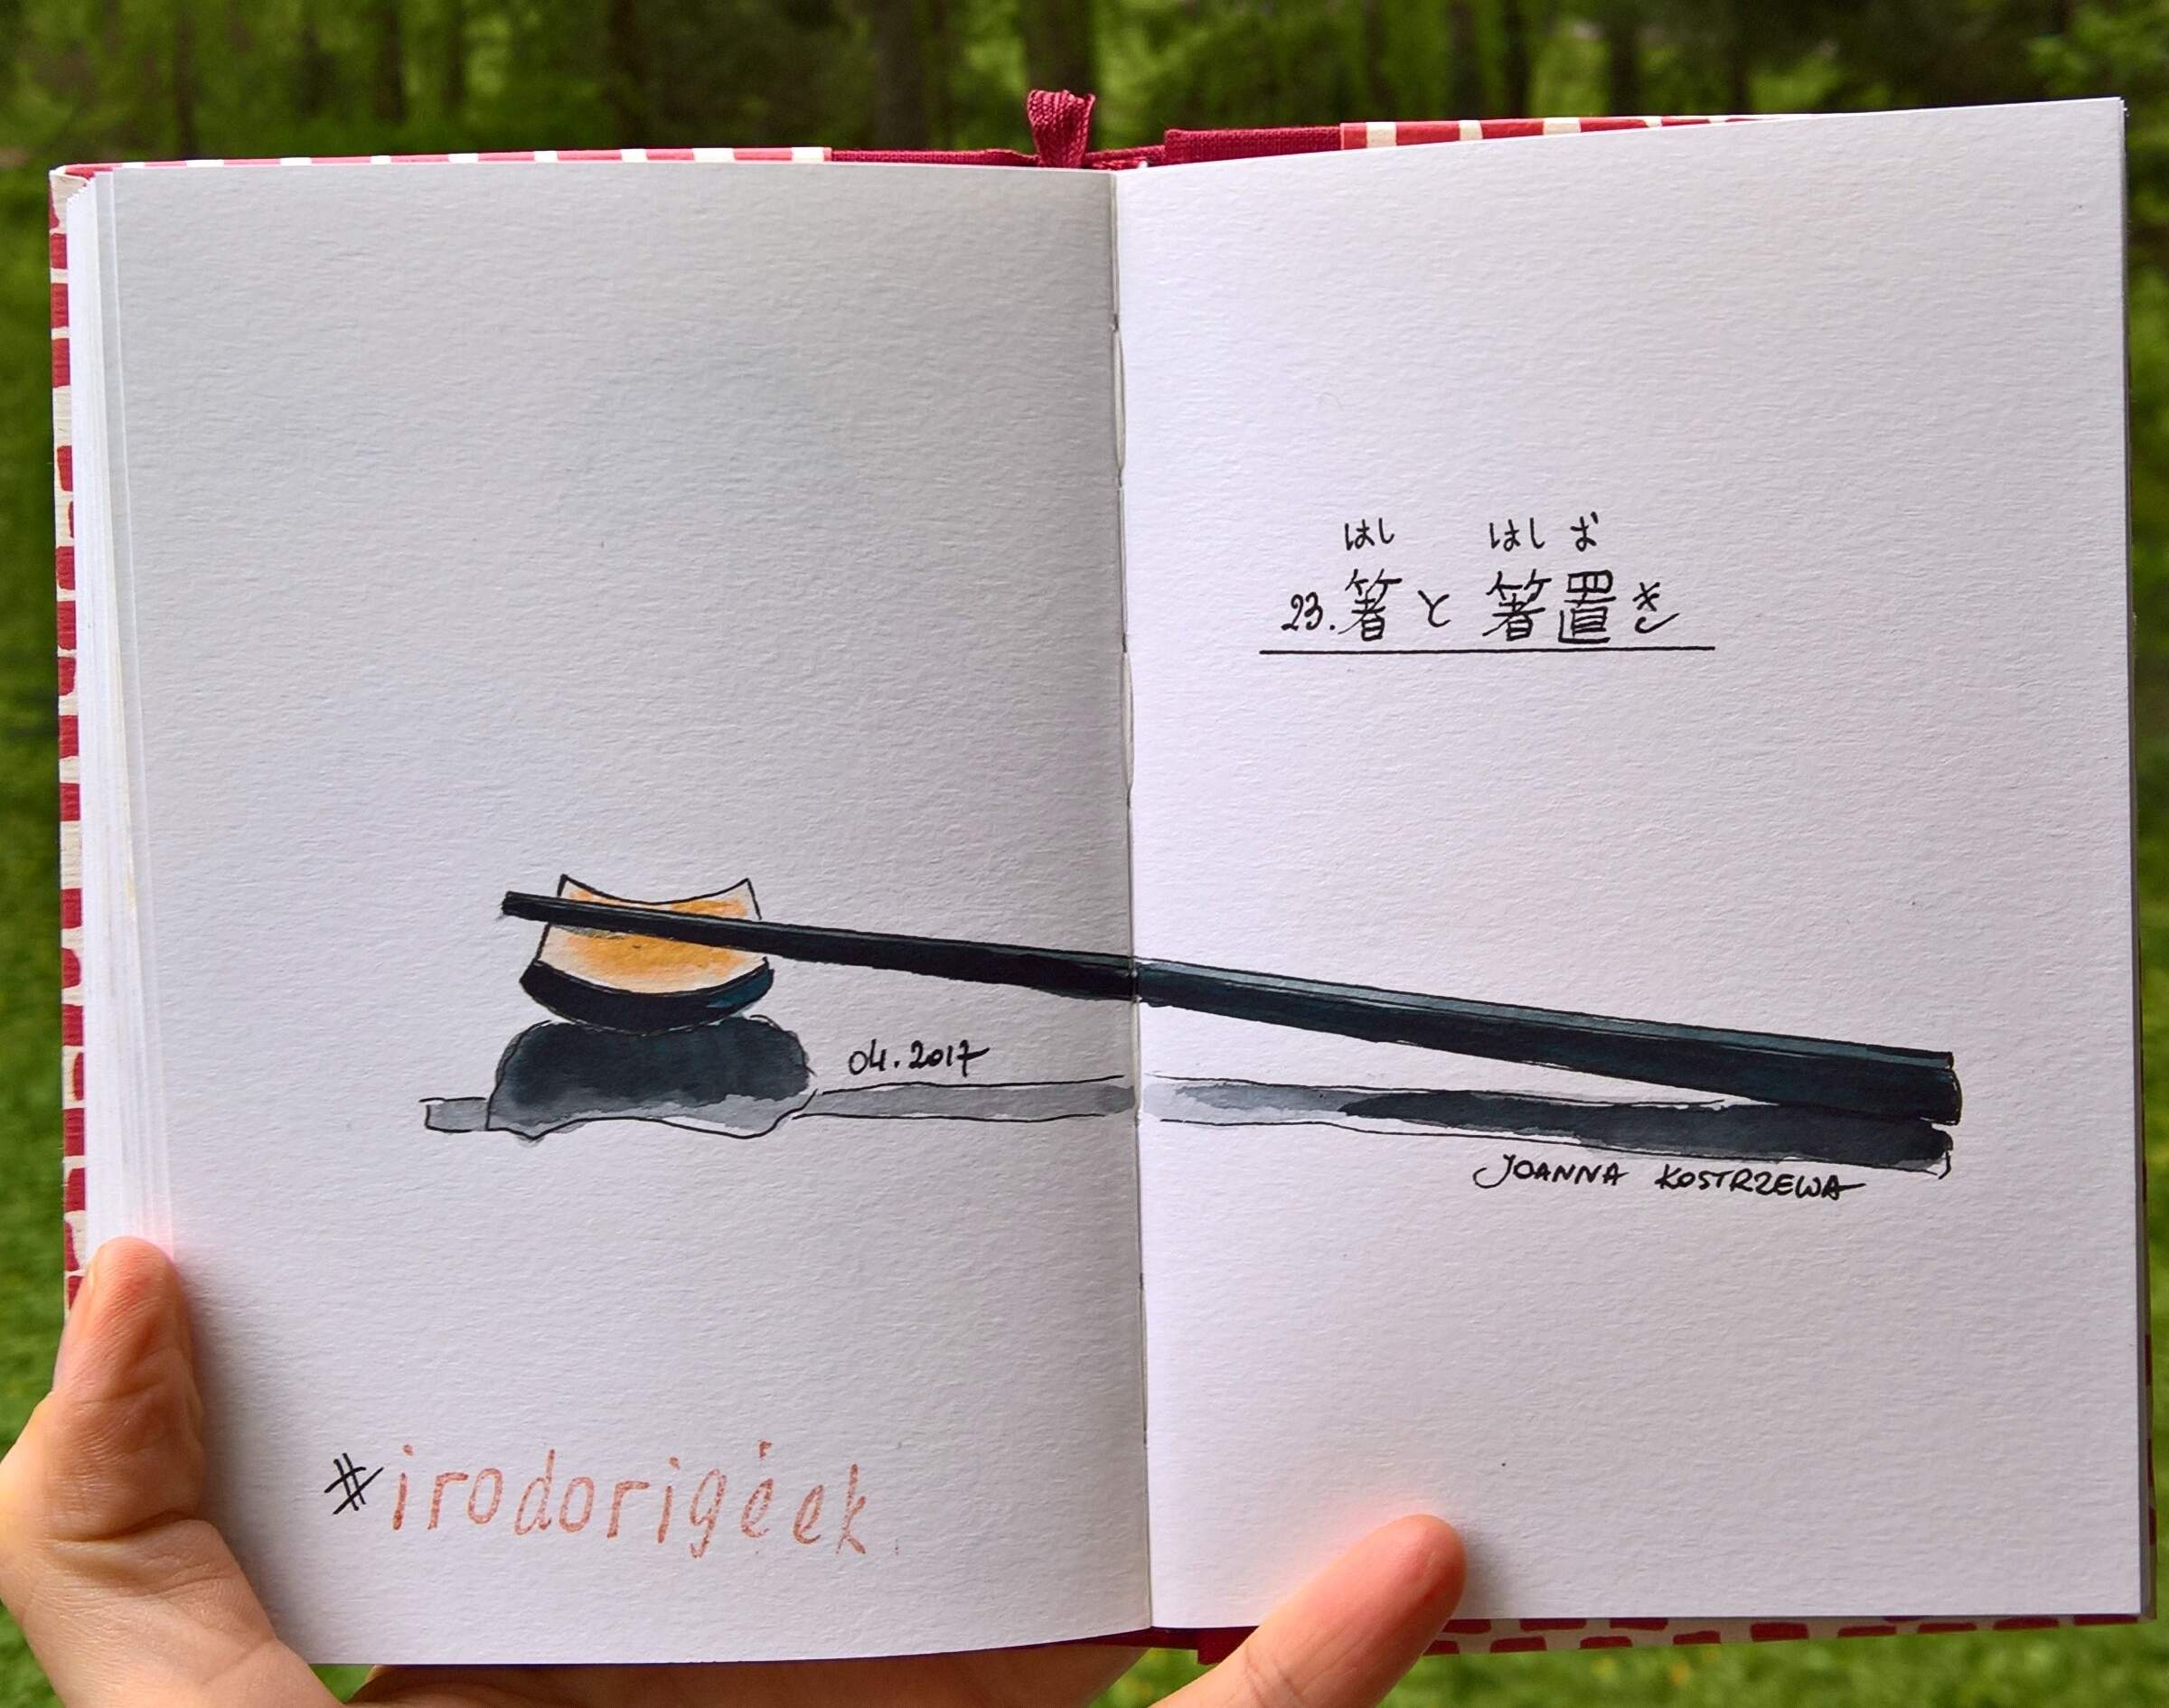 04.2017
#irodorigeek
はし はし お
23.箸と箸置き
JOANNA KOSTRZEWA